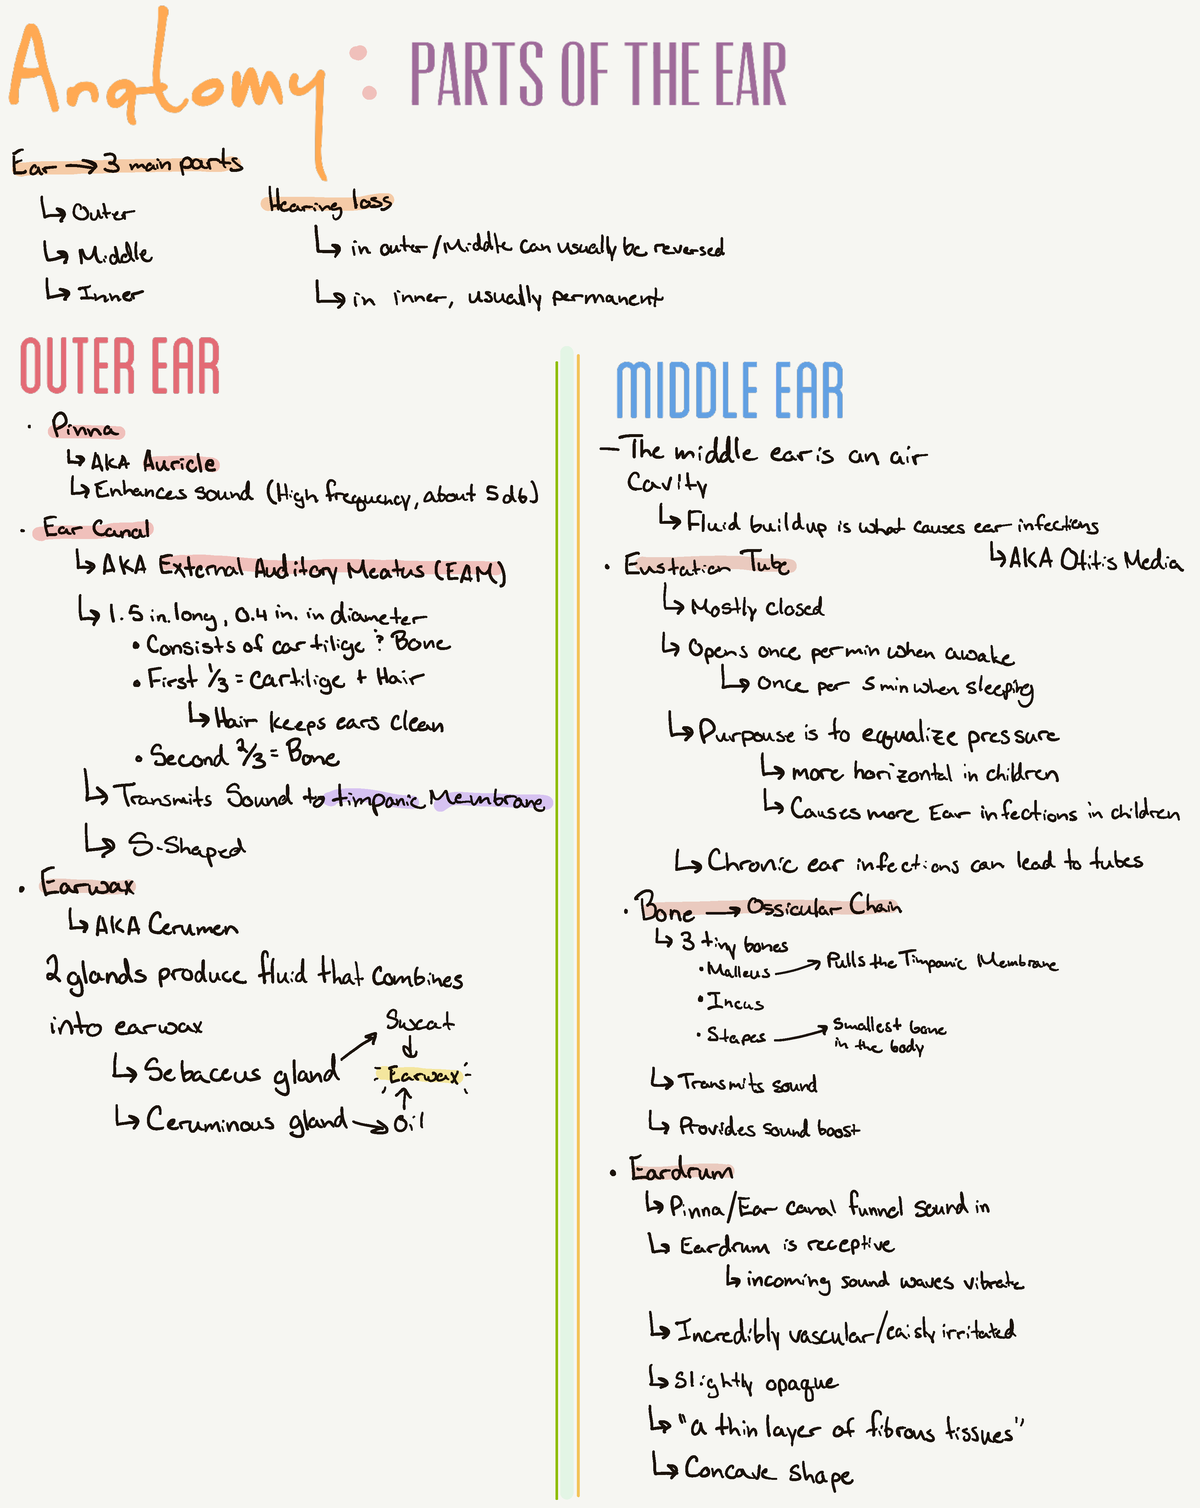 Anatomy: PARTS OF THE EAR
Ear → 3 main parts
↳ Outer
↳ Middle
↳ Inner
Hearing loss
↳ in outer/Middle can usually be reversed
↳ in inner, usually permanent
OUTER EAR
• Pinna
↳ AKA Auricle
↳ Enhances sound (High frequency, about 5db)
• Ear Canal
↳ AKA External Auditory Meatus (EAM)
↳ 1.5 in. long, 0.4 in. in diameter
• Consists of cartilige & Bone
• First 1/3 = cartilige + Hair
↳ Hair keeps ears clean
• Second 2/3 = Bone
↳ Transmits Sound to timpanic Membrane
↳ S-Shaped
• Earwax
↳ AKA Cerumen
2 glands produce fluid that combines
into earwax
↳ Sebaceus gland → Sweat
↓
Earwax
↑
↳ Ceruminous gland → Oil
MIDDLE EAR
– The middle ear is an air
cavity
↳ Fluid buildup is what causes ear infections
↳ AKA Otitis Media
• Eustation Tube
↳ Mostly closed
↳ Opens once per min when awake
↳ Once per 5 min when sleeping
↳ Purpouse is to equalize pressure
↳ more horizontal in children
↳ Causes more Ear infections in children
↳ Chronic ear infections can lead to tubes
• Bone → Ossicular Chain
↳ 3 tiny bones
• Malleus → Pulls the Timpanic Membrane
• Incus
• Stapes → Smallest bone
in the body
↳ Transmits sound
↳ Provides sound boost
• Eardrum
↳ Pinna/Ear canal funnel sound in
↳ Eardrum is receptive
↳ incoming sound waves vibrate
↳ Incredibly vascular/eaisly irritated
↳ Slightly opaque
↳ "a thin layer of fibrous tissues"
↳ Concave shape